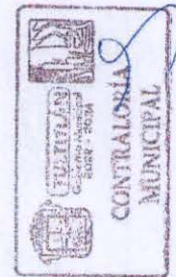 TULTITLÁN
2022 - 2024
CONTRALORÍA
MUNICIPAL